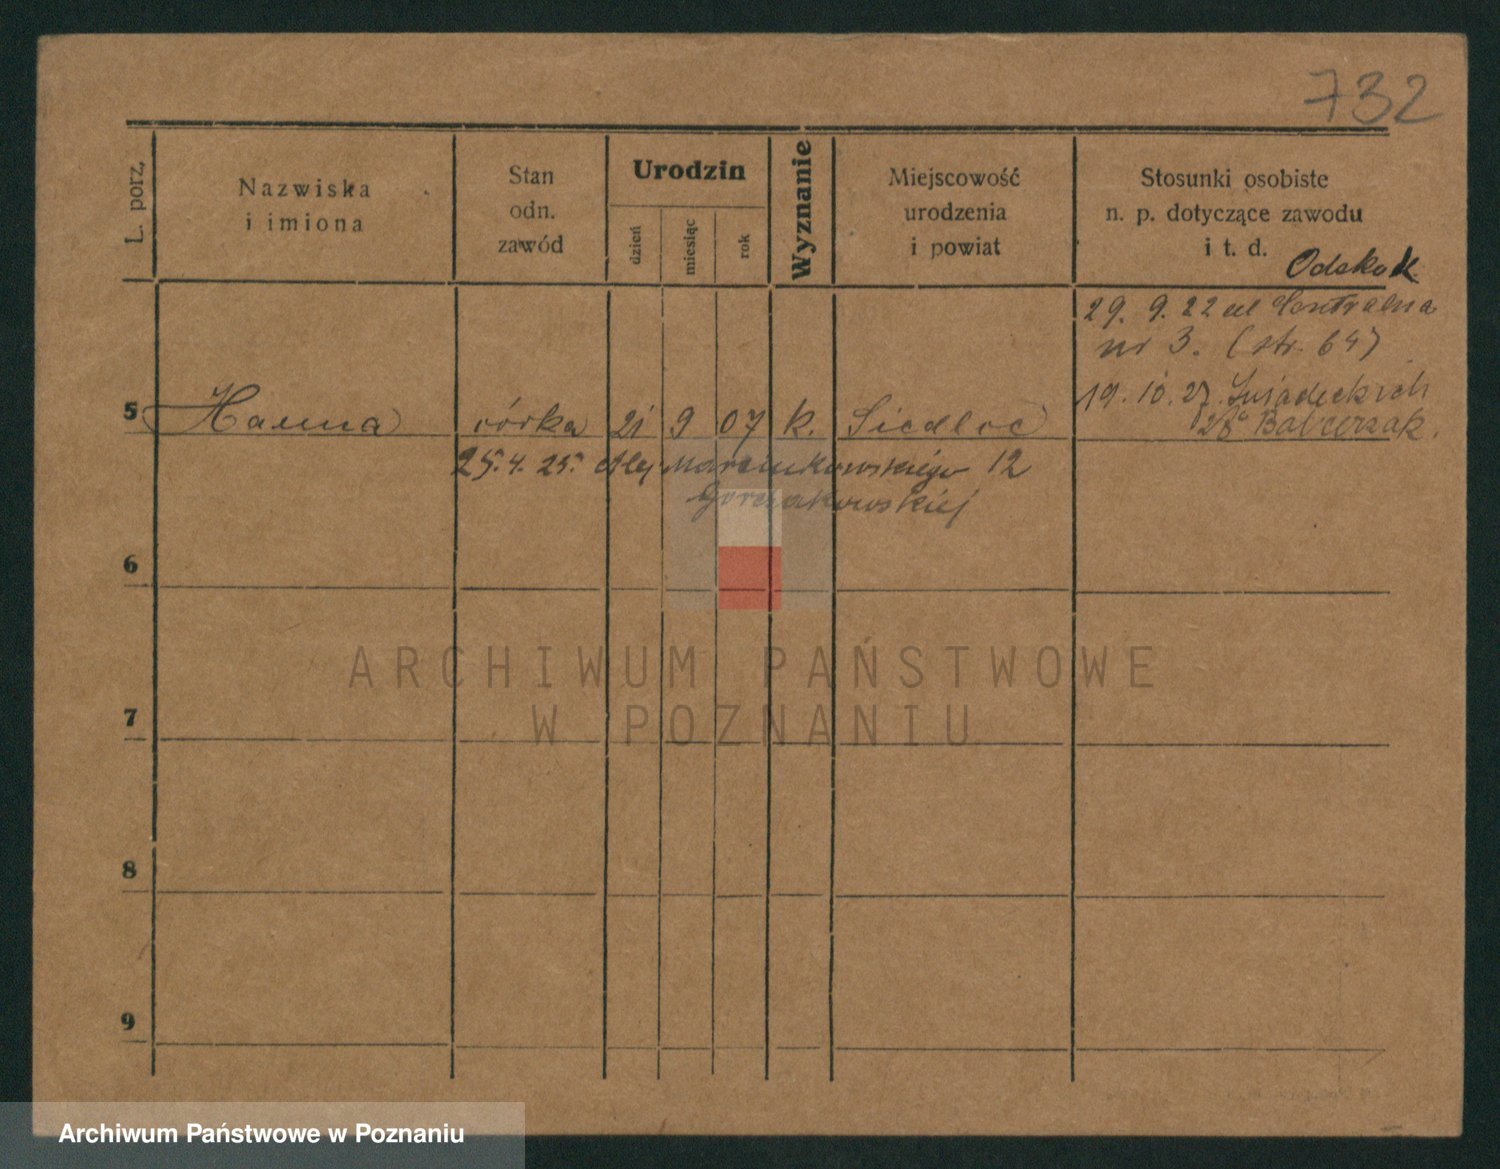 732
L. porz.
Nazwiska
i imiona
Stan
odn.
zawód
Urodzin
dzień
miesiąc
rok
Wyznanie
Miejscowość
urodzenia
i powiat
Stosunki osobiste
n. p. dotyczące zawodu
i t. d.
29. 9. 22 ul Centralna
nr 3. (str. 64)
19. 10. 27. Śniadeckich
Balcerzak.
5 Hanna córka 21 9 07 k.
25. 4. 25. Alej Marcinkowskiego 12
Gorczakowskiej
6
ARCHIWUM PAŃSTWOWE
W POZNANIU
7
8
9
Archiwum Państwowe w Poznaniu